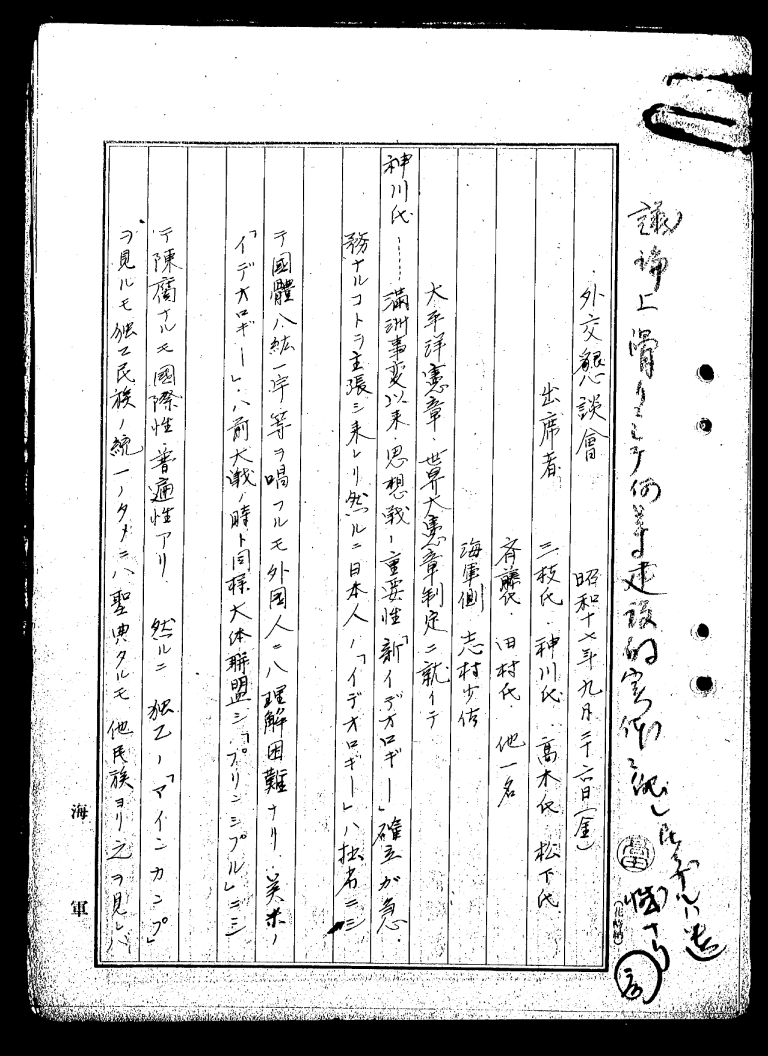 議論上滑リシテ何等建設的実体ニ触レ
遺憾ナリ
外交懇談會
昭和十七年九月二十六日(金)
出席者 三枝氏・神川氏・高木氏・松下氏
斉藤氏・田村氏 他一名
海軍側 志村少佐
大平洋憲章・世界大憲章制定ニ就イテ
神川氏………満洲事変以来・思想戦ノ重要性「新イデオロギー」確立が急
務ナルコトヲ主張シ来レリ然ルニ日本人ノ「イデオロギー」ハ拙劣ニシ
テ國體八紘一宇等ヲ唱フルモ外国人ニハ理解困難ナリ・英米ノ
「イデオロギー」ハ前大戦ノ時ト同様大体聯盟シ「プリンシプル」ニシ
テ陳腐ナルモ國際性・普遍性アリ 然ルニ 独乙ノ「マインカンプ」
ヲ見ルモ独乙民族ノ統一ノタメニハ聖典タルモ 他民族ヨリ之ヲ見レバ
海軍